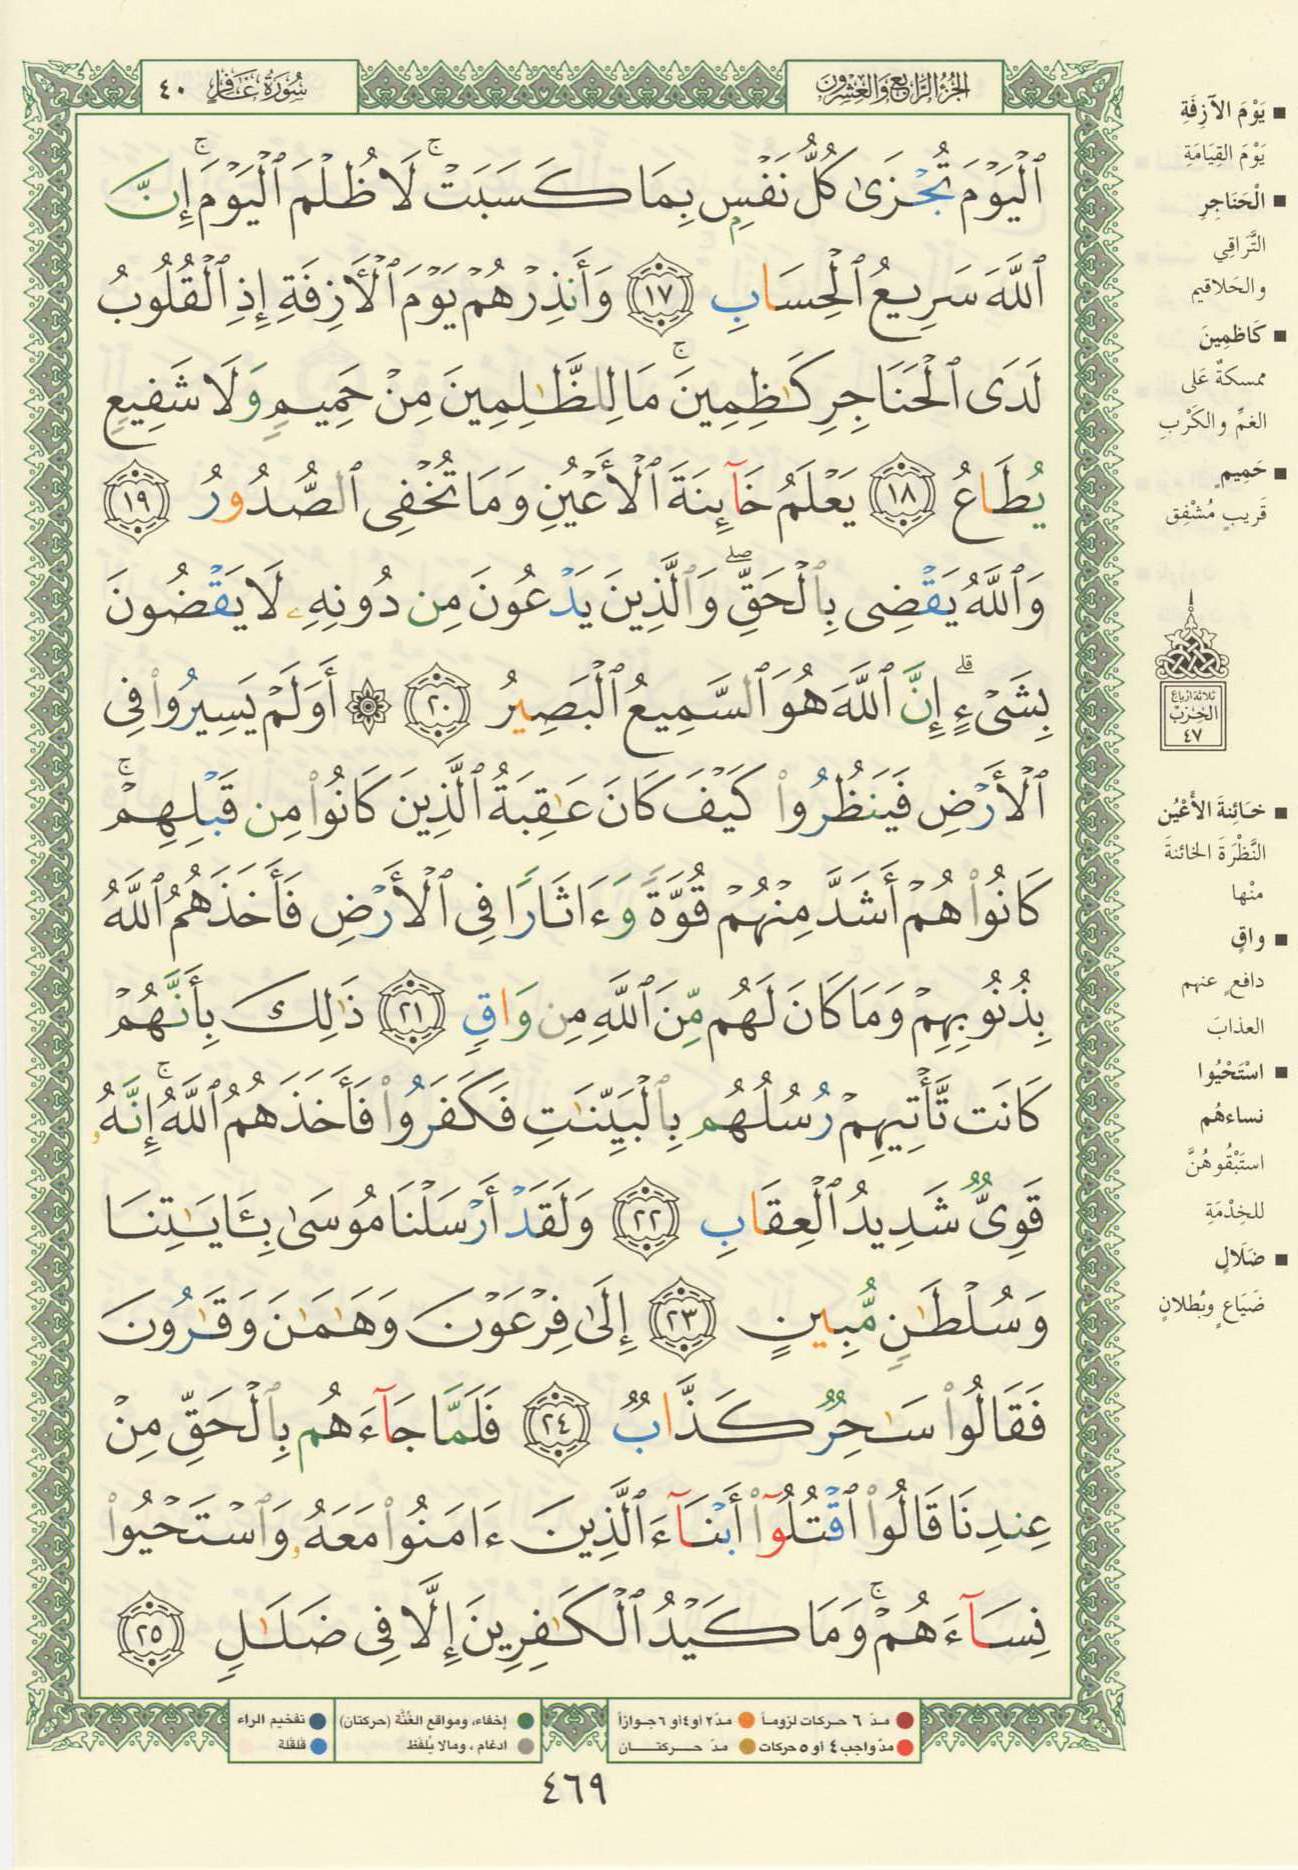 الجزء الرابع والعشرون
سورة غافر ٤٠
ٱلۡيَوۡمَ تُجۡزَىٰ كُلُّ نَفۡسِۭ بِمَا كَسَبَتۡۚ لَا ظُلۡمَ ٱلۡيَوۡمَۚ إِنَّ
ٱللَّهَ سَرِيعُ ٱلۡحِسَابِ ١٧ وَأَنذِرۡهُمۡ يَوۡمَ ٱلۡأٓزِفَةِ إِذِ ٱلۡقُلُوبُ
لَدَى ٱلۡحَنَاجِرِ كَٰظِمِينَۚ مَا لِلظَّٰلِمِينَ مِنۡ حَمِيمٖ وَلَا شَفِيعٖ
يُطَاعُ ١٨ يَعۡلَمُ خَآئِنَةَ ٱلۡأَعۡيُنِ وَمَا تُخۡفِي ٱلصُّدُورُ ١٩
وَٱللَّهُ يَقۡضِي بِٱلۡحَقِّۖ وَٱلَّذِينَ يَدۡعُونَ مِن دُونِهِۦ لَا يَقۡضُونَ
بِشَيۡءٍۗ إِنَّ ٱللَّهَ هُوَ ٱلسَّمِيعُ ٱلۡبَصِيرُ ٢٠ ۞ أَوَلَمۡ يَسِيرُواْ فِي
ٱلۡأَرۡضِ فَيَنظُرُواْ كَيۡفَ كَانَ عَٰقِبَةُ ٱلَّذِينَ كَانُواْ مِن قَبۡلِهِمۡۚ
كَانُواْ هُمۡ أَشَدَّ مِنۡهُمۡ قُوَّةٗ وَءَاثَارٗا فِي ٱلۡأَرۡضِ فَأَخَذَهُمُ ٱللَّهُ
بِذُنُوبِهِمۡ وَمَا كَانَ لَهُم مِّنَ ٱللَّهِ مِن وَاقٖ ٢١ ذَٰلِكَ بِأَنَّهُمۡ
كَانَت تَّأۡتِيهِمۡ رُسُلُهُم بِٱلۡبَيِّنَٰتِ فَكَفَرُواْ فَأَخَذَهُمُ ٱللَّهُۚ إِنَّهُۥ
قَوِيّٞ شَدِيدُ ٱلۡعِقَابِ ٢٢ وَلَقَدۡ أَرۡسَلۡنَا مُوسَىٰ بِـَٔايَٰتِنَا
وَسُلۡطَٰنٖ مُّبِينٍ ٢٣ إِلَىٰ فِرۡعَوۡنَ وَهَٰمَٰنَ وَقَٰرُونَ
فَقَالُواْ سَٰحِرٞ كَذَّابٞ ٢٤ فَلَمَّا جَآءَهُم بِٱلۡحَقِّ مِنۡ
عِندِنَا قَالُواْ ٱقۡتُلُوٓاْ أَبۡنَآءَ ٱلَّذِينَ ءَامَنُواْ مَعَهُۥ وَٱسۡتَحۡيُواْ
نِسَآءَهُمۡۚ وَمَا كَيۡدُ ٱلۡكَٰفِرِينَ إِلَّا فِي ضَلَٰلٖ ٢٥
يَوْمَ الآزِفَةِ
يَوْمَ القِيَامَةِ
الْحَنَاجِرِ
التَّرَاقِي
والحَلاقيم
كَاظِمِينَ
ممسكةٌ عَلى
الغمِّ والكَرْبِ
حَمِيمٍ
قَريبٍ مُشْفِق
ثلاثة أرباع
الحزب
٤٧
خَائِنَةَ الأَعْيُن
النَّظْرَةَ الخائنةَ
منْها
واقٍ
دافعٍ عنهم
العذابَ
اسْتَحْيُوا
نساءهُم
استَبْقُوهُنَّ
للخِدْمَةِ
ضَلَالٍ
ضَيَاعٍ وبُطلانٍ
مدّ ٦ حركات لزوماً
مدّ ٢ أو ٤ أو ٦ جوازاً
إخفاء، ومواقع الغُنَّة (حركتان)
تفخيم الراء
مدّ واجب ٤ أو ٥ حركات
مدّ حركتان
ادغام، ومالا يُلفَظ
قلقلة
٤٦٩